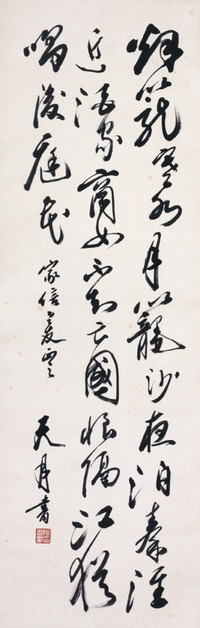 烟籠寒水月籠沙夜泊秦淮
近酒家商女不知亡國恨隔江猶
唱後庭花 家信 天月書